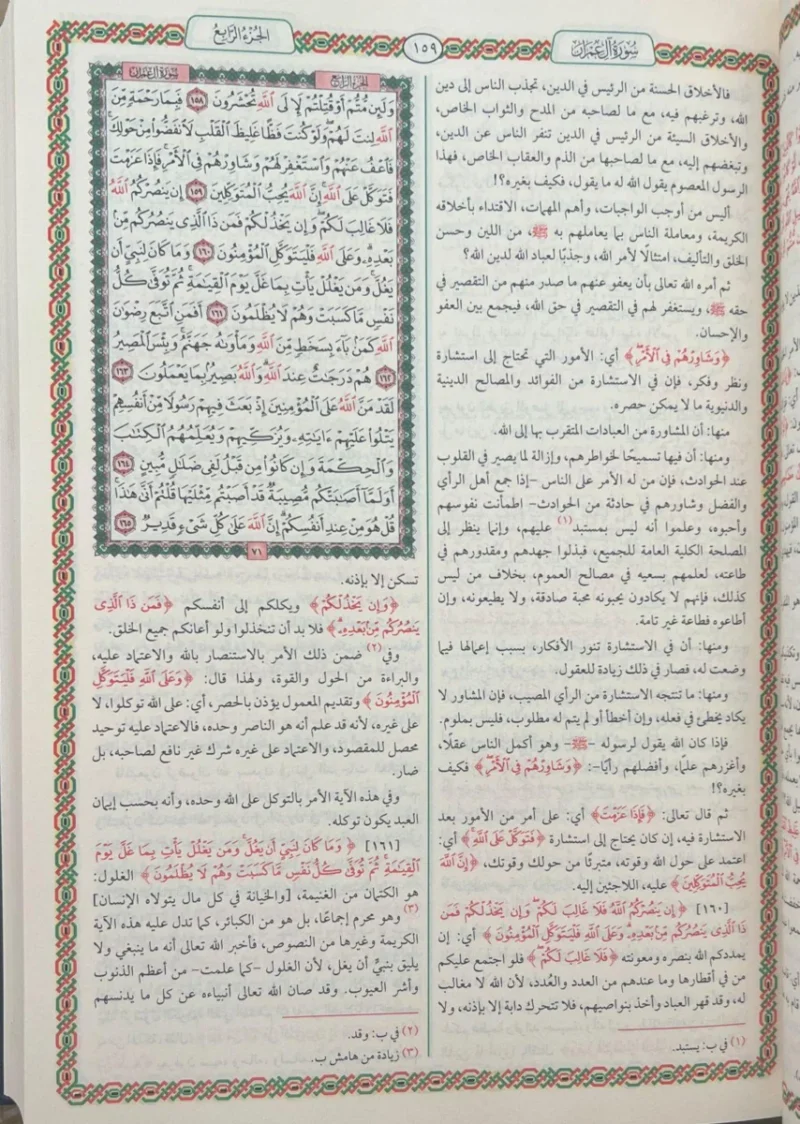 سورة آل عمران
١٥٩
الجزء الرابع
فالأخلاق الحسنة من الرئيس في الدين، تجذب الناس إلى دين
الله، وترغبهم فيه، مع ما لصاحبه من المدح والثواب الخاص،
والأخلاق السيئة من الرئيس في الدين تنفر الناس عن الدين،
وتبغضهم إليه، مع ما لصاحبها من الذم والعقاب الخاص، فهذا
الرسول المعصوم يقول الله له ما يقول، فكيف بغيره؟!
أليس من أوجب الواجبات، وأهم المهمات، الاقتداء بأخلاقه
الكريمة، ومعاملة الناس بما يعاملهم به ﷺ، من اللين وحسن
الخلق والتأليف، امتثالًا لأمر الله، وجذبًا لعباد الله لدين الله؟
ثم أمره الله تعالى بأن يعفو عنهم ما صدر منهم من التقصير في
حقه ﷺ، ويستغفر لهم في التقصير في حق الله، فيجمع بين العفو
والإحسان.
﴿وَشَاوِرْهُمْ فِي الْأَمْرِ﴾ أي: الأمور التي تحتاج إلى استشارة
ونظر وفكر، فإن في الاستشارة من الفوائد والمصالح الدينية
والدنيوية ما لا يمكن حصره.
منها: أن المشاورة من العبادات المتقرب بها إلى الله.
ومنها: أن فيها تسميحًا لخواطرهم، وإزالة لما يصير في القلوب
عند الحوادث، فإن من له الأمر على الناس -إذا جمع أهل الرأي
والفضل وشاورهم في حادثة من الحوادث- اطمأنت نفوسهم
وأحبوه، وعلموا أنه ليس بمستبد(١) عليهم، وإنما ينظر إلى
المصلحة الكلية العامة للجميع، فبذلوا جهدهم ومقدورهم في
طاعته، لعلمهم بسعيه في مصالح العموم، بخلاف من ليس
كذلك، فإنهم لا يكادون يحبونه محبة صادقة، ولا يطيعونه، وإن
أطاعوه فطاعة غير تامة.
ومنها: أن في الاستشارة تنور الأفكار، بسبب إعمالها فيما
وضعت له، فصار في ذلك زيادة للعقول.
ومنها: ما تنتجه الاستشارة من الرأي المصيب، فإن المشاور لا
يكاد يخطئ في فعله، وإن أخطأ أو لم يتم له مطلوب، فليس بملوم.
فإذا كان الله يقول لرسوله -ﷺ- وهو أكمل الناس عقلًا،
وأغزرهم علمًا، وأفضلهم رأيًا-: ﴿وَشَاوِرْهُمْ فِي الْأَمْرِ﴾ فكيف
بغيره؟!
ثم قال تعالى: ﴿فَإِذَا عَزَمْتَ﴾ أي: على أمر من الأمور بعد
الاستشارة فيه، إن كان يحتاج إلى استشارة ﴿فَتَوَكَّلْ عَلَى اللَّهِ﴾ أي:
اعتمد على حول الله وقوته، متبرئًا من حولك وقوتك، ﴿إِنَّ اللَّهَ
يُحِبُّ الْمُتَوَكِّلِينَ﴾ عليه، اللاجئين إليه.
[١٦٠] ﴿إِن يَنصُرْكُمُ اللَّهُ فَلَا غَالِبَ لَكُمْ وَإِن يَخْذُلْكُمْ فَمَن
ذَا الَّذِي يَنصُرُكُم مِّن بَعْدِهِ وَعَلَى اللَّهِ فَلْيَتَوَكَّلِ الْمُؤْمِنُونَ﴾ أي: إن
يمددكم الله بنصره ومعونته ﴿فَلَا غَالِبَ لَكُمْ﴾ فلو اجتمع عليكم
من في أقطارها وما عندهم من العدد والعُدد، لأن الله لا مغالب
له، وقد قهر العباد وأخذ بنواصيهم، فلا تتحرك دابة إلا بإذنه، ولا
(١) في ب: يستبد.
الجزء الرابع
سورة آل عمران
وَلَئِن مُّتُّمْ أَوْ قُتِلْتُمْ لَإِلَى اللَّهِ تُحْشَرُونَ ١٥٨ فَبِمَا رَحْمَةٍ مِّنَ
اللَّهِ لِنتَ لَهُمْ وَلَوْ كُنتَ فَظًّا غَلِيظَ الْقَلْبِ لَانفَضُّوا مِنْ حَوْلِكَ
فَاعْفُ عَنْهُمْ وَاسْتَغْفِرْ لَهُمْ وَشَاوِرْهُمْ فِي الْأَمْرِ فَإِذَا عَزَمْتَ
فَتَوَكَّلْ عَلَى اللَّهِ إِنَّ اللَّهَ يُحِبُّ الْمُتَوَكِّلِينَ ١٥٩ إِن يَنصُرْكُمُ اللَّهُ
فَلَا غَالِبَ لَكُمْ وَإِن يَخْذُلْكُمْ فَمَن ذَا الَّذِي يَنصُرُكُم مِّن
بَعْدِهِ وَعَلَى اللَّهِ فَلْيَتَوَكَّلِ الْمُؤْمِنُونَ ١٦٠ وَمَا كَانَ لِنَبِيٍّ أَن
يَغُلَّ وَمَن يَغْلُلْ يَأْتِ بِمَا غَلَّ يَوْمَ الْقِيَامَةِ ثُمَّ تُوَفَّى كُلُّ
نَفْسٍ مَّا كَسَبَتْ وَهُمْ لَا يُظْلَمُونَ ١٦١ أَفَمَنِ اتَّبَعَ رِضْوَانَ
اللَّهِ كَمَن بَاءَ بِسَخَطٍ مِّنَ اللَّهِ وَمَأْوَاهُ جَهَنَّمُ وَبِئْسَ الْمَصِيرُ
١٦٢ هُمْ دَرَجَاتٌ عِندَ اللَّهِ وَاللَّهُ بَصِيرٌ بِمَا يَعْمَلُونَ ١٦٣
لَقَدْ مَنَّ اللَّهُ عَلَى الْمُؤْمِنِينَ إِذْ بَعَثَ فِيهِمْ رَسُولًا مِّنْ أَنفُسِهِمْ
يَتْلُو عَلَيْهِمْ آيَاتِهِ وَيُزَكِّيهِمْ وَيُعَلِّمُهُمُ الْكِتَابَ
وَالْحِكْمَةَ وَإِن كَانُوا مِن قَبْلُ لَفِي ضَلَالٍ مُّبِينٍ ١٦٤
أَوَلَمَّا أَصَابَتْكُم مُّصِيبَةٌ قَدْ أَصَبْتُم مِّثْلَيْهَا قُلْتُمْ أَنَّى هَٰذَا
قُلْ هُوَ مِنْ عِندِ أَنفُسِكُمْ إِنَّ اللَّهَ عَلَى كُلِّ شَيْءٍ قَدِيرٌ ١٦٥
٧١
تسكن إلا بإذنه.
﴿وَإِن يَخْذُلْكُمْ﴾ ويكلكم إلى أنفسكم ﴿فَمَن ذَا الَّذِي
يَنصُرُكُم مِّن بَعْدِهِ﴾ فلا بد أن تنخذلوا ولو أعانكم جميع الخلق.
وفي(٢) ضمن ذلك الأمر بالاستنصار بالله والاعتماد عليه،
والبراءة من الحول والقوة، ولهذا قال: ﴿وَعَلَى اللَّهِ فَلْيَتَوَكَّلِ
الْمُؤْمِنُونَ﴾ وتقديم المعمول يؤذن بالحصر، أي: على الله توكلوا، لا
على غيره، لأنه قد علم أنه هو الناصر وحده، فالاعتماد عليه توحيد
محصل للمقصود، والاعتماد على غيره شرك غير نافع لصاحبه، بل
ضار.
وفي هذه الآية الأمر بالتوكل على الله وحده، وأنه بحسب إيمان
العبد يكون توكله.
[١٦١] ﴿وَمَا كَانَ لِنَبِيٍّ أَن يَغُلَّ وَمَن يَغْلُلْ يَأْتِ بِمَا غَلَّ يَوْمَ
الْقِيَامَةِ ثُمَّ تُوَفَّى كُلُّ نَفْسٍ مَّا كَسَبَتْ وَهُمْ لَا يُظْلَمُونَ﴾ الغلول:
هو الكتمان من الغنيمة، [والخيانة في كل مال يتولاه الإنسان]
(٣) وهو محرم إجماعًا، بل هو من الكبائر، كما تدل عليه هذه الآية
الكريمة وغيرها من النصوص، فأخبر الله تعالى أنه ما ينبغي ولا
يليق بنبيٍّ أن يغل، لأن الغلول -كما علمت- من أعظم الذنوب
وأشر العيوب. وقد صان الله تعالى أنبياءه عن كل ما يدنسهم
(٢) في ب: وقد.
(٣) زيادة من هامش ب.